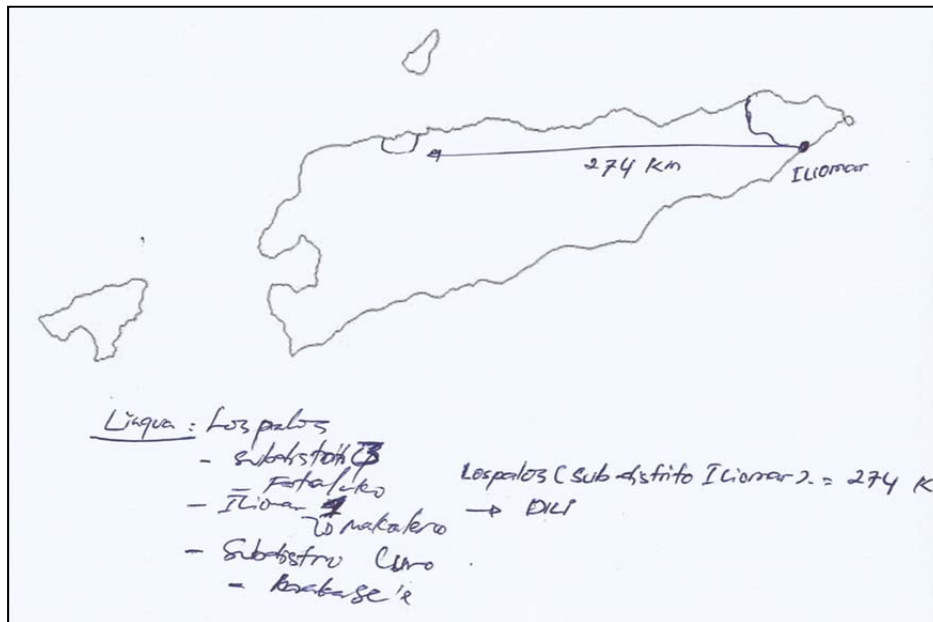 274 Km
Iliomar
Liagua : Lospalos
- Subdistrito
- Fataluko
- Iliomar
makalero
- Subdistro
Lospalos (sub-distrito Iliomar). = 274 K
→ Dili